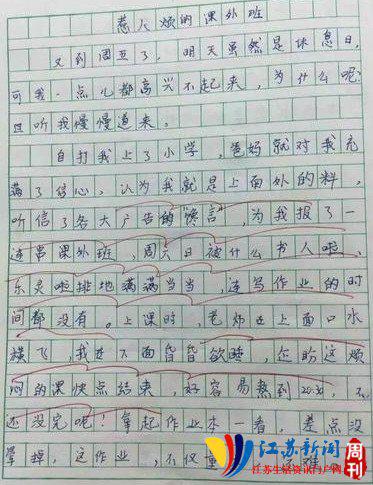 惹人烦的课外班
又到周五了，明天虽然是休息日，
可我一点儿都高兴不起来，为什么呢？
且听我慢慢道来。
自打我上了小学，爸妈就对我充
满了信心，认为我就是上面外的料，
听信了各大广告的“馋言”，为我报了一
连串课外班，周六日被什么书人啦、
东灵啦排地满满当当，连写作业的时
间都没有。上课时，老师在上面口水
横飞，我在下面昏昏欲睡，企盼这烦
闷的课快点结束，好容易熬到20:30，不
还没完呢！拿起作业本一看，差点没
晕掉，这作业，不仅量 难
江苏新闻周刊
江苏生活资讯门户网